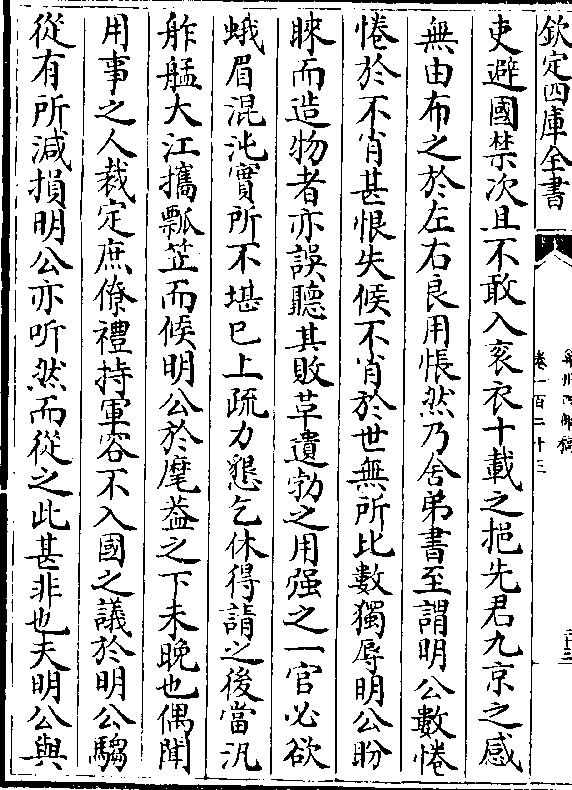 欽定四庫全書
弇州四部稿
卷一百二十三
吏避國禁次且不敢入袞衣十載之挹先君九京之感
無由布之於左右良用悵然乃舍弟書至謂明公數惓
惓於不肖甚恨失候不肖於世無所比數獨辱明公盼
睞而造物者亦誤聽其敗草遺勃之用强之一官必欲
蛾眉混沌實所不堪已上疏力懇乞休得請之後當汎
舴艋大江攜瓢笠而候明公於麾葢之下未晚也偶聞
用事之人裁定庶僚禮持軍容不入國之議於明公騶
從有所減損明公亦听然而從之此甚非也夫明公與